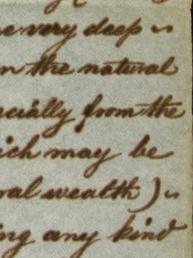 e very deep is
n the natural
ecially from the
ich may be
ral wealth) is
ng any kind